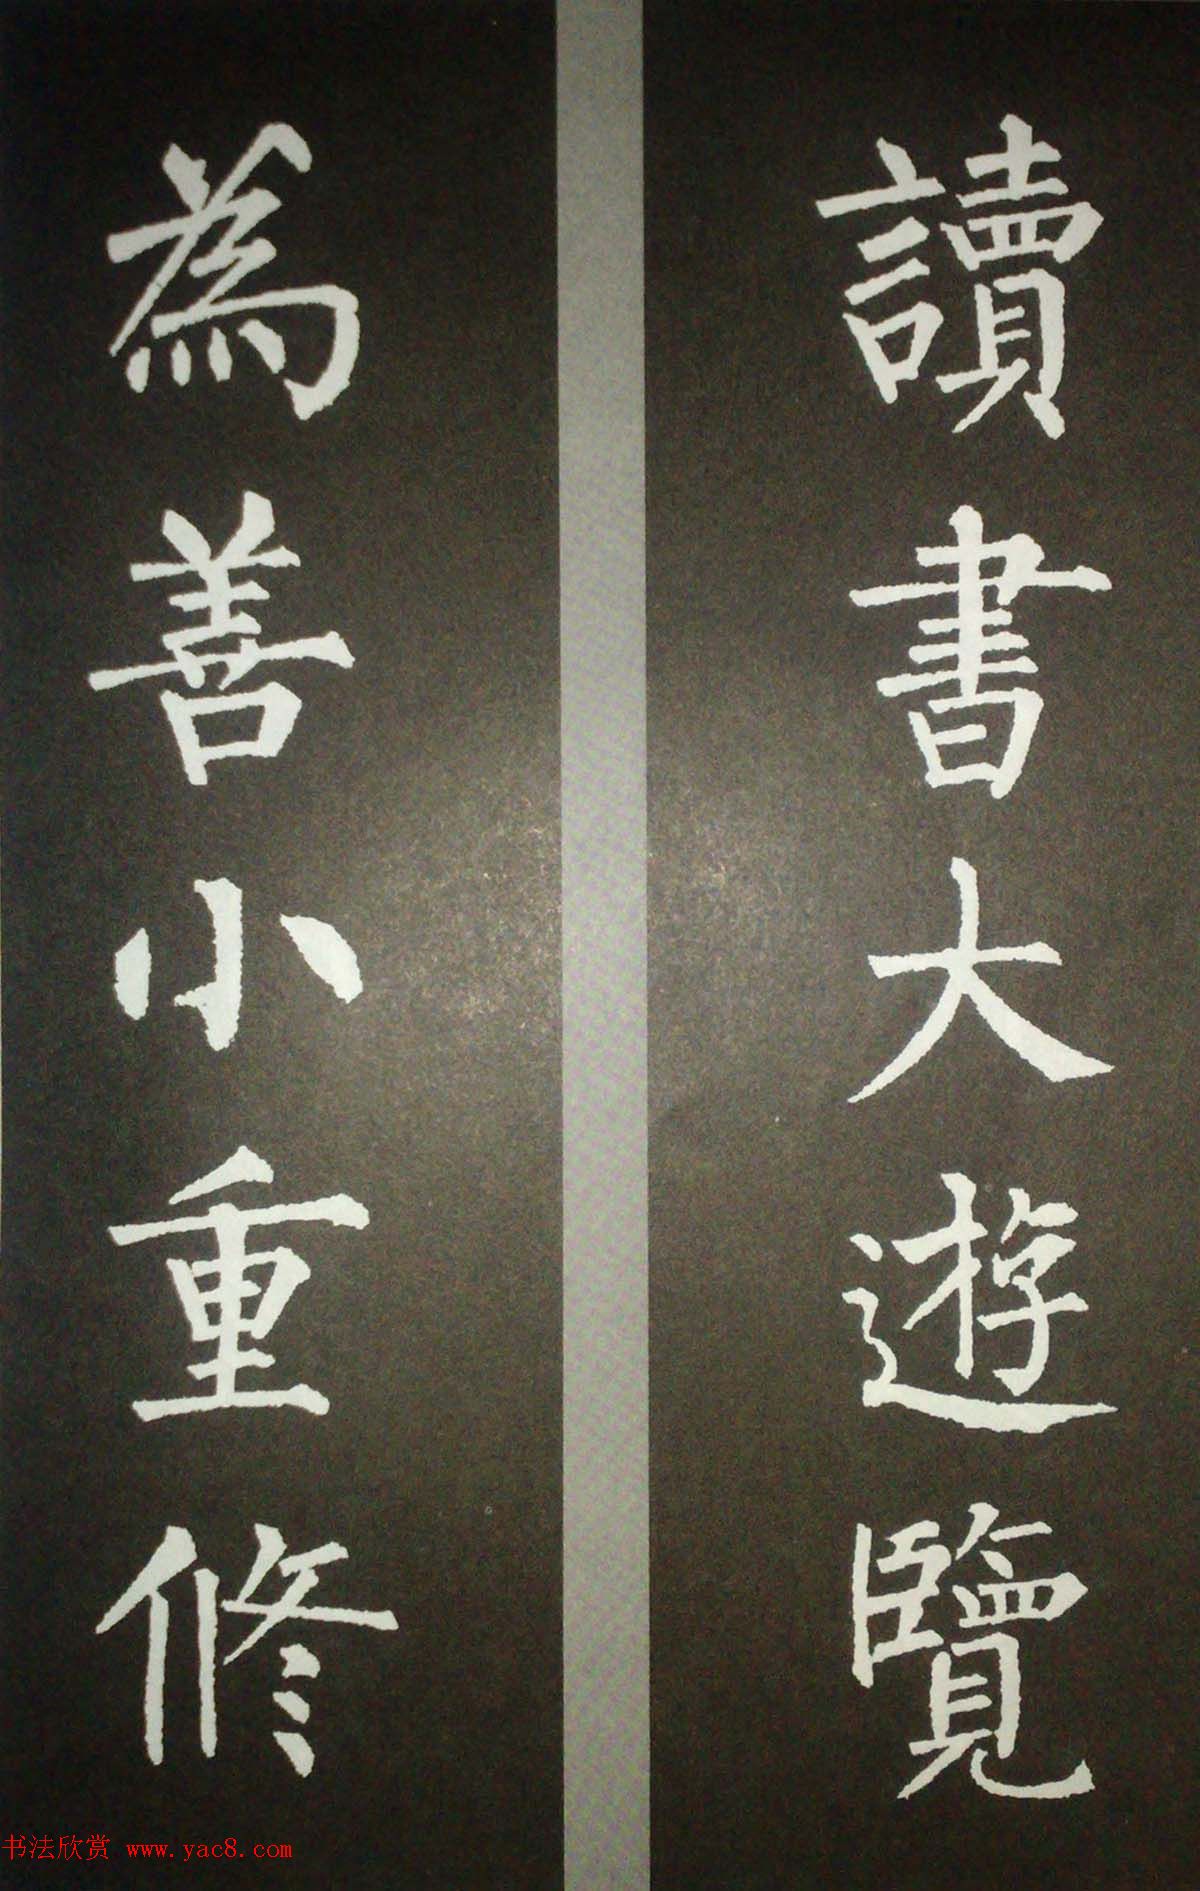 讀書大遊覽
為善小重修
书法欣赏 www.yac8.com